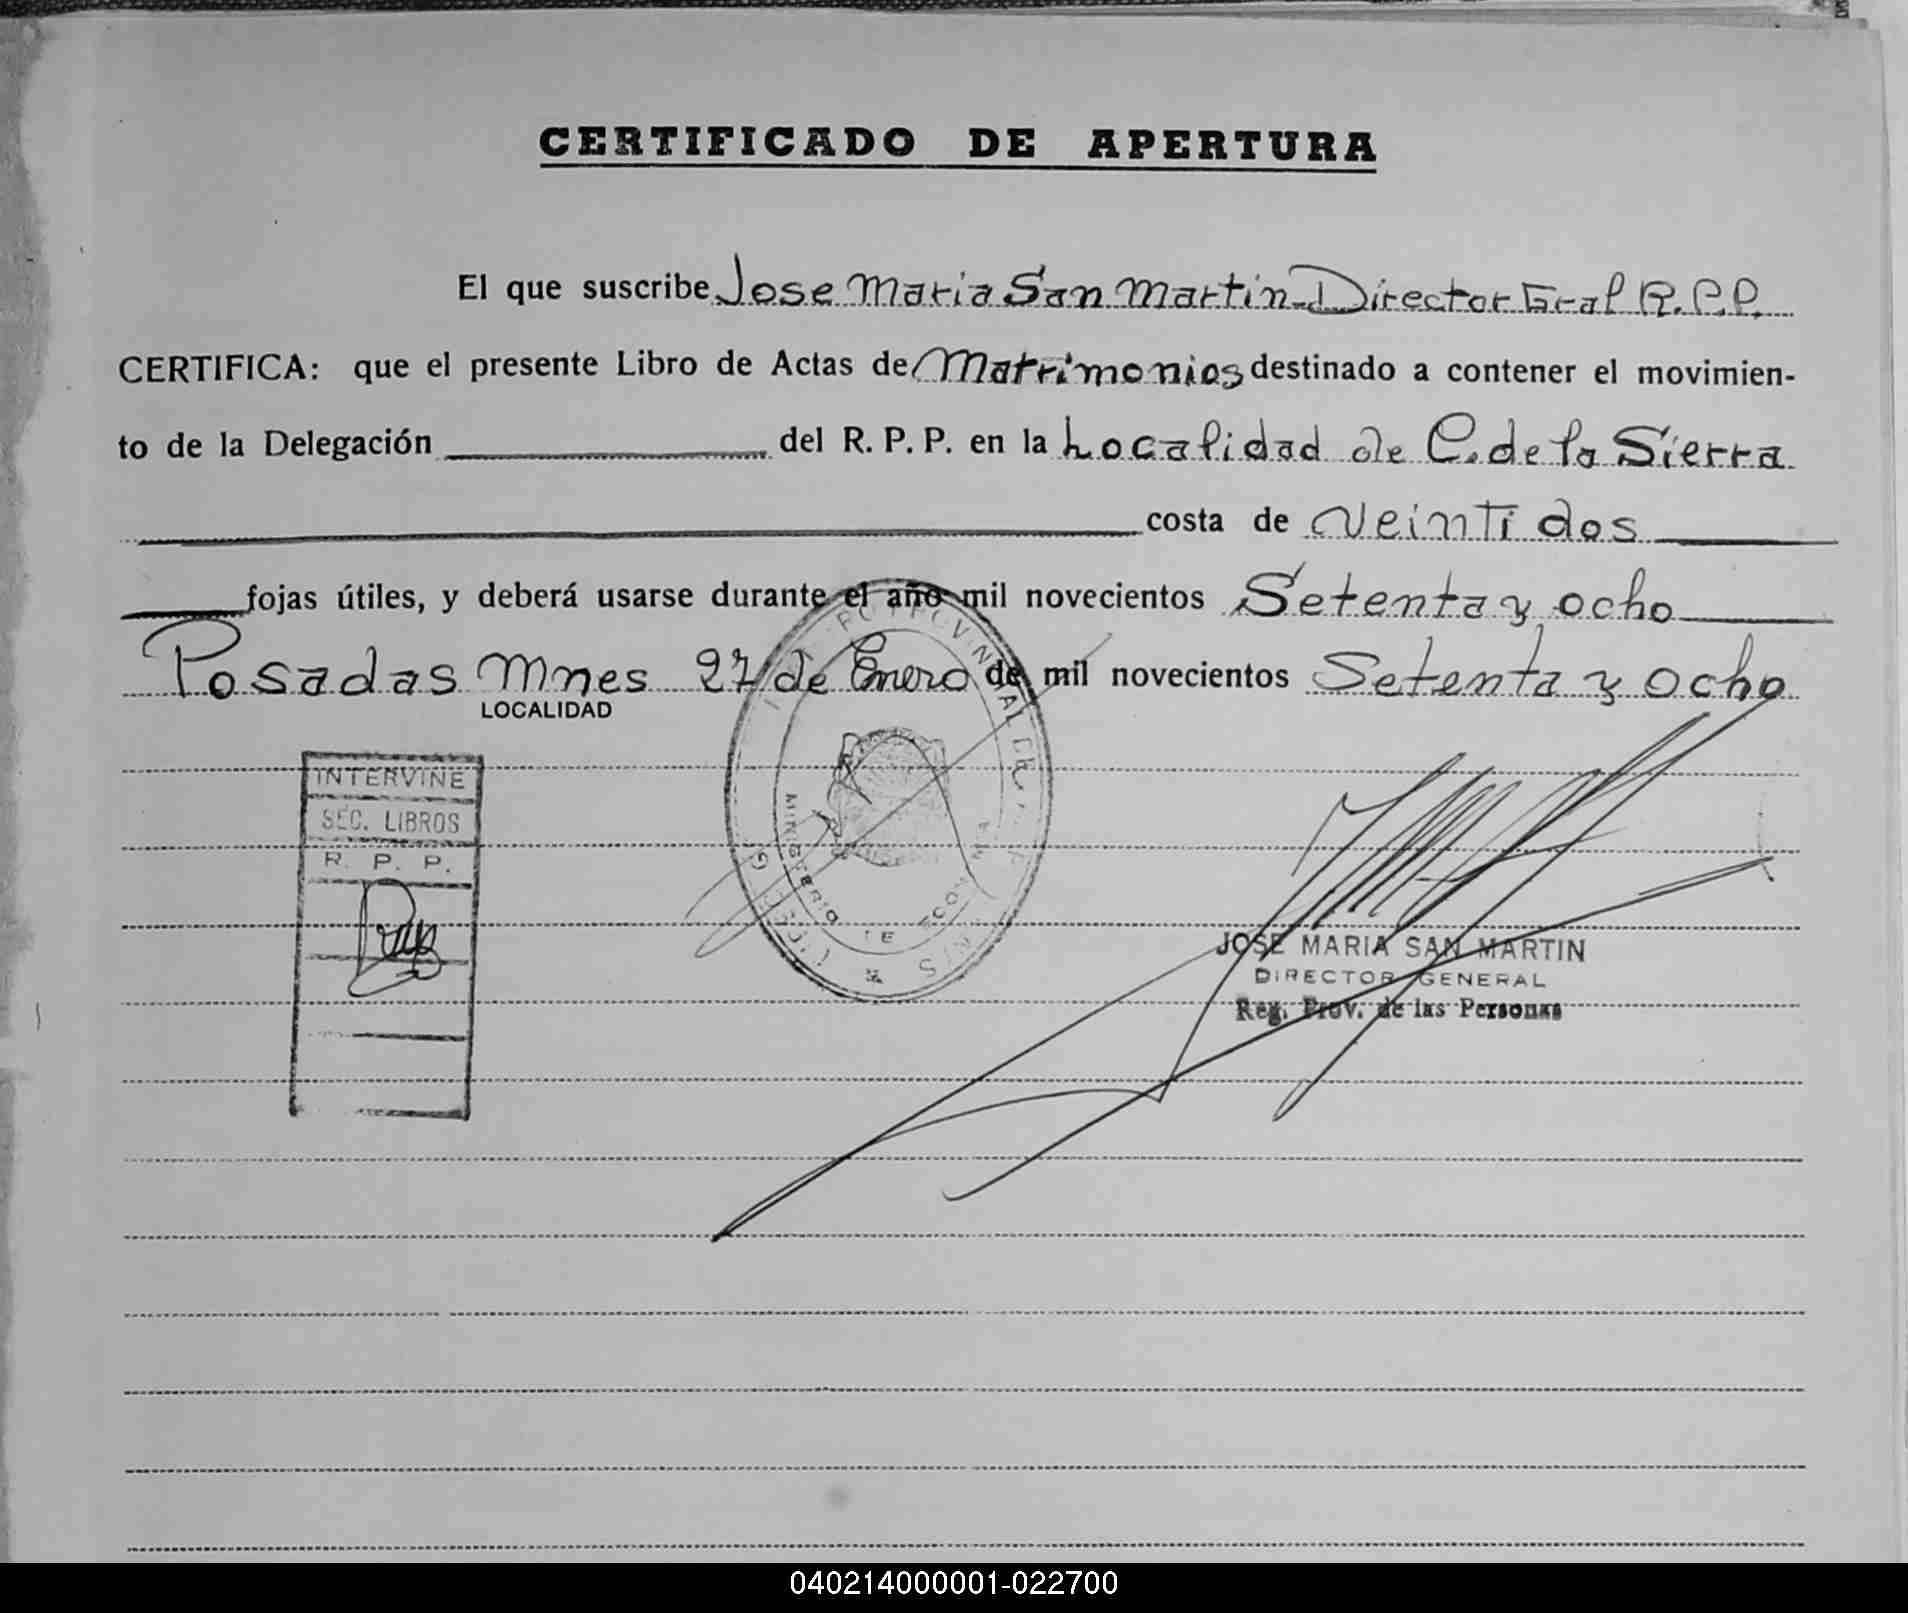 CERTIFICADO DE APERTURA
El que suscribe Jose Maria San Martin - Director Gral R.P.P.
CERTIFICA: que el presente Libro de Actas de Matrimonios destinado a contener el movimien-
to de la Delegación del R. P. P. en la Localidad de C. de la Sierra
costa de veinti dos
fojas útiles, y deberá usarse durante el año mil novecientos Setenta y ocho
Posadas Mnes 27 de Enero de mil novecientos Setenta y ocho
LOCALIDAD
INTERVINE
SEC. LIBROS
R. P. P.
MINISTERIO DE ECONOMIA
JOSE MARIA SAN MARTIN
DIRECTOR GENERAL
Reg. Prov. de las Personas
040214000001-022700